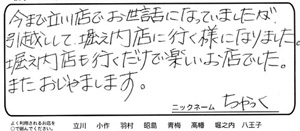 今まで立川店でお世話になっていましたが、
引越しして堀之内店に行く様になりました。
堀之内店も行くだけで楽しいお店でした。
またおじゃまします。
ニックネーム ちゃっく
よく利用されるお店を
○で囲んでください。 立川 小作 羽村 昭島 青梅 高幡 堀之内 八王子